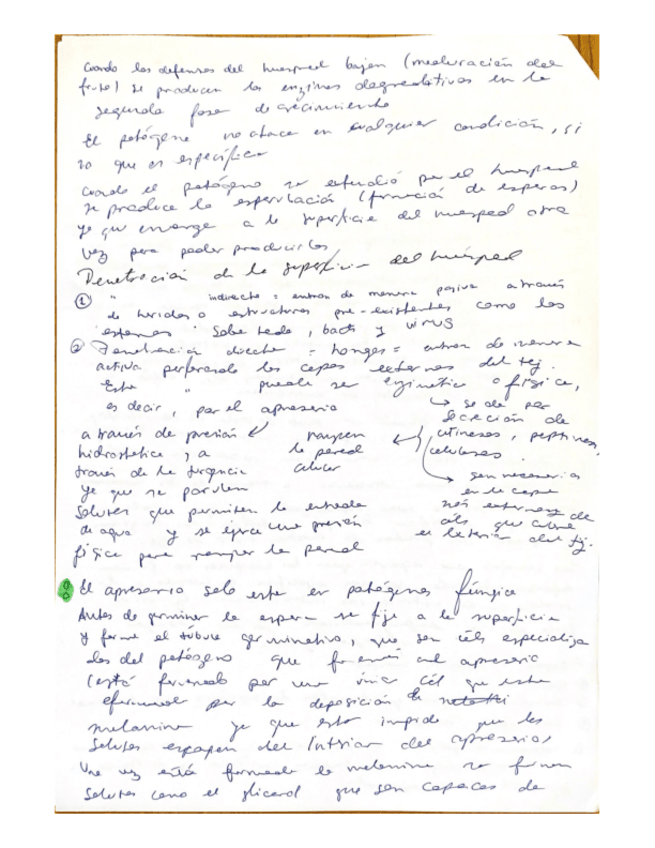 Cuando las defensas del huesped bajan (maduración del
fruto) se producen las enzimas degradativas en la
segunda fase de crecimiento
El patógeno no ataca en cualquier condición, si
no que es específica
Cuando el patógeno se extendió por el huesped
se produce la esporulación (formación de esporas)
ya que emerge a la superficie del huesped otra
vez para poder producirlas
Penetración de la superficie del huésped
① " indirecta: entran de manera pasiva a través
de heridas o estructuras pre-existentes como los
estomas. Sobe todo, bacts y virus
② Penetración directa = hongos = entran de manera
activa perforando las capas externas del tej.
Esta " puede ser enzimática o física,
es decir, por el apresorio
↳ se da por
secreción de
cutinasas, celulasas
a través de presión
hidrostática, a
través de la turgencia
ya que se
solutos que permiten la entrada
de agua y se ejerce una presión
física para romper la pared
rompen
la pared
celular
↳ son necesarias
en la capa
más externa de
céls que cubre
el exterior del tej.
El apresorio solo esta en patógenos fúngico
Antes de germinar la espora se fija a la superficie
y forma el túbulo germinativo, que son céls especializa
das del patógeno que formarán al apresorio
(está formado por una única cél que esta
por la deposición de
melanina ya que esta impide que los
solutos escapen del interior del apresorio)
Una vez está formada la melanina se forman
solutos como el glicerol que son capaces de